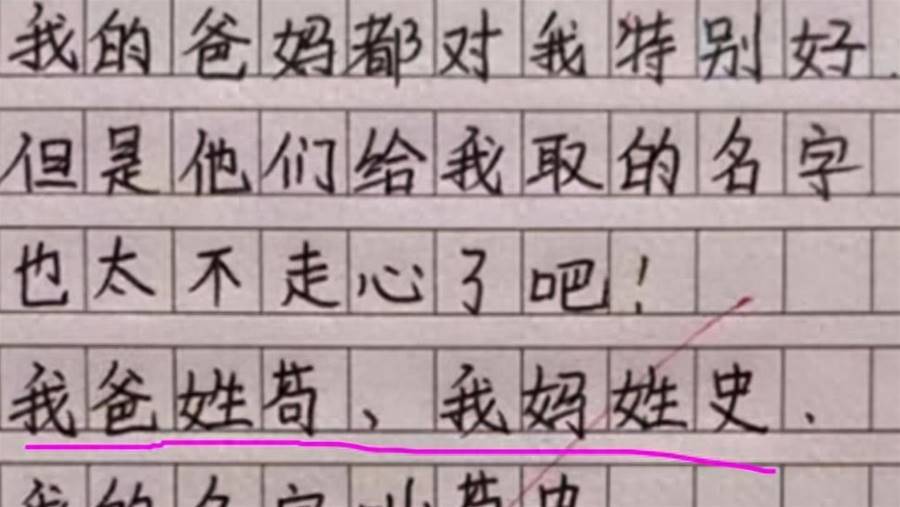 我的爸妈都对我特别好.
但是他们给我取的名字
也太不走心了吧!
我爸姓苟、我妈姓史.
我的名字叫苟史